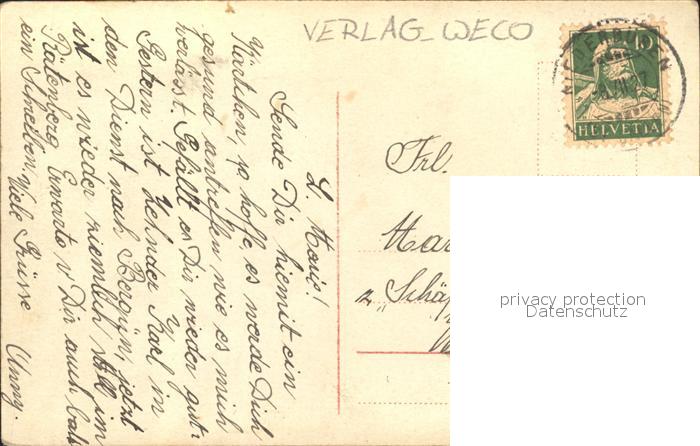 VERLAG WECO
10
HELVETIA
L. Marie!
Sende Dir hiemit ein
Kärtchen, ja hoffe, es werde Dich
gesund antreffen wie es mich
verlässt. Gefällt es Dir wieder gut?
Gestern ist Zehnder Karl in
den Dienst nach Bergün, jetzt
ist es wieder ziemlich still im
Rütenberg. Erwarte v Dir auch bald
ein Schreiben. Viele Grüsse
Frl.
privacy protection
Datenschutz